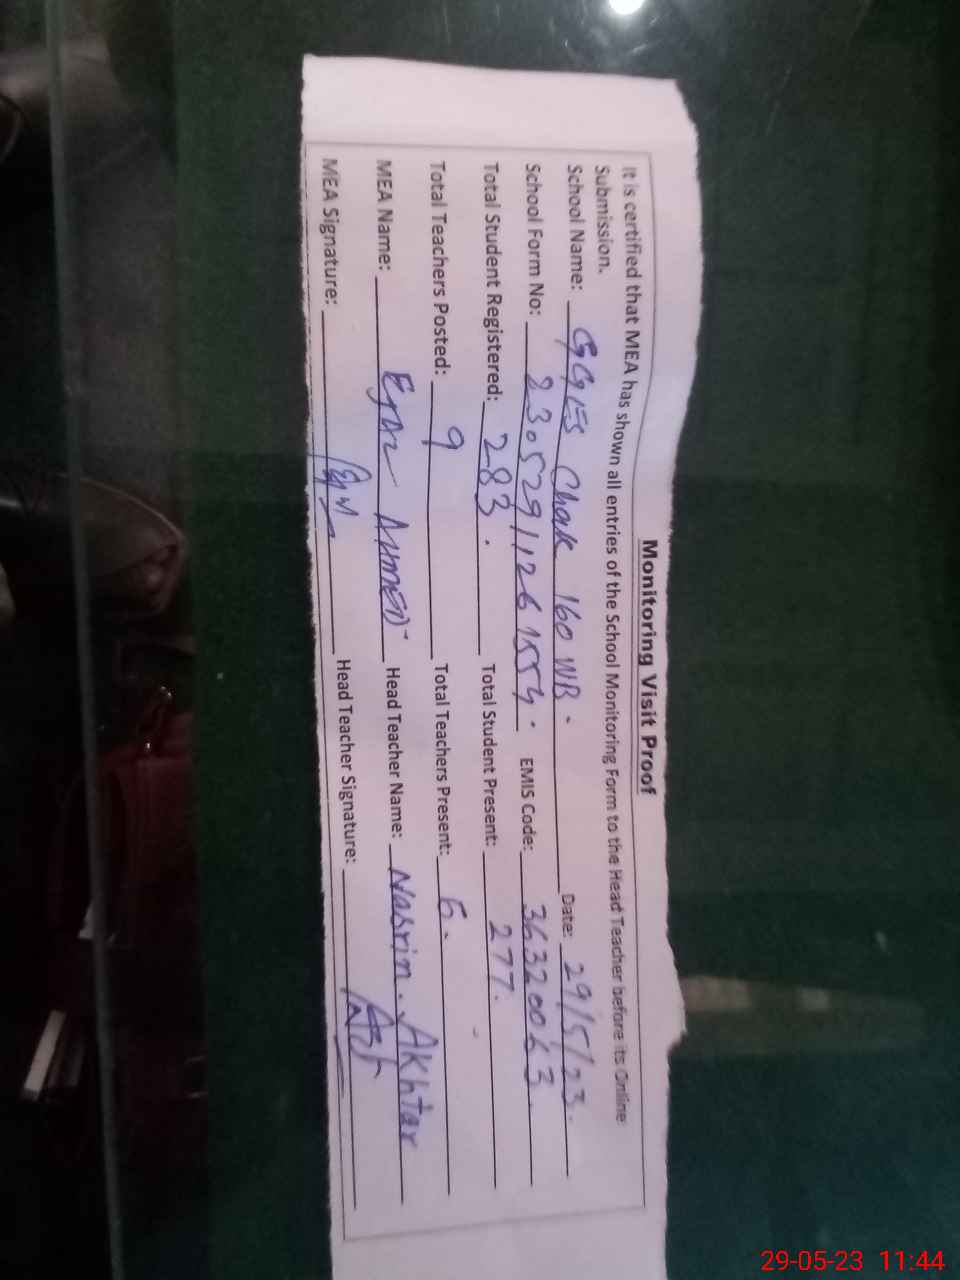 Monitoring Visit Proof
It is certified that MEA has shown all entries of the School Monitoring Form to the Head Teacher before its Online
Submission.
School Name: GGES Chak 160 WB. Date: 29/5/23.
School Form No: 23052911261554. EMIS Code: 36320063
Total Student Registered: 283. Total Student Present: 277.
Total Teachers Posted: 9 Total Teachers Present: 6.
MEA Name: Ejaz AHMED Head Teacher Name: Nasrin. Akhtar
MEA Signature: Head Teacher Signature:
29-05-23 11:44